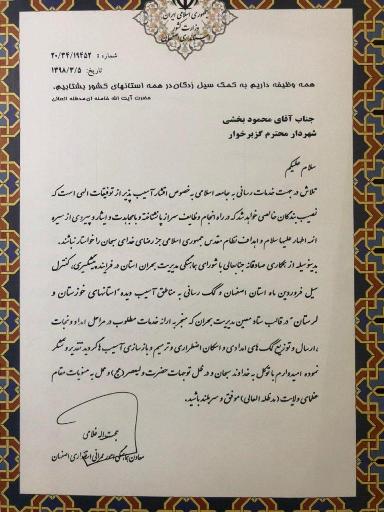 جمهوری اسلامی ایران
وزارت کشور
استانداری اصفهان
شماره : ۲۰/۳۴/۱۹۴۵۲
تاریخ: ۱۳۹۸/۳/۵
همه وظیفه داریم به کمک سیل زدگان در همه استانهای کشور بشتابیم.
حضرت آیت الله خامنه ای مدظله العالی
جناب آقای محمود بخشی
شهردار محترم گزبرخوار
سلام علیکم
تلاش در جهت خدمات رسانی به جامعه اسلامی به خصوص اقشار آسیب پذیر از توفیقات الهی است که
نصیب بندگان خالصی خواهد شد که در راه انجام وظایف سر از پا نشناخته و با مجاهدت و ایثار و پیروی از سیره
ائمه اطهار علیها سلام و اهداف نظام مقدس جمهوری اسلامی جز رضای خدای سبحان را خواستار نباشند.
بدینوسیله از همکاری صادقانه جنابعالی با شورای هماهنگی مدیریت بحران استان در فرایند پیشگیری، کنترل
سیل فروردین ماه استان اصفهان و کمک رسانی به مناطق آسیب دیده "استانهای خوزستان و
لرستان" در قالب ستاد معین مدیریت بحران که منجر به ارائه خدمات مطلوب در مراحل امداد و نجات
، ارسال و توزیع کمک های امدادی و اسکان اضطراری و ترمیم و بازسازی آسیب ها گردید تقدیر و تشکر
نموده امیدوارم با توکل به خداوند سبحان و در ظل توجهات حضرت ولیعصر (عج) و در ظل منویات مقام
عظمای ولایت (مدظله العالی) موفق و سربلند باشید.
حجت اله غلامی
معاون هماهنگی امور عمرانی استانداری اصفهان